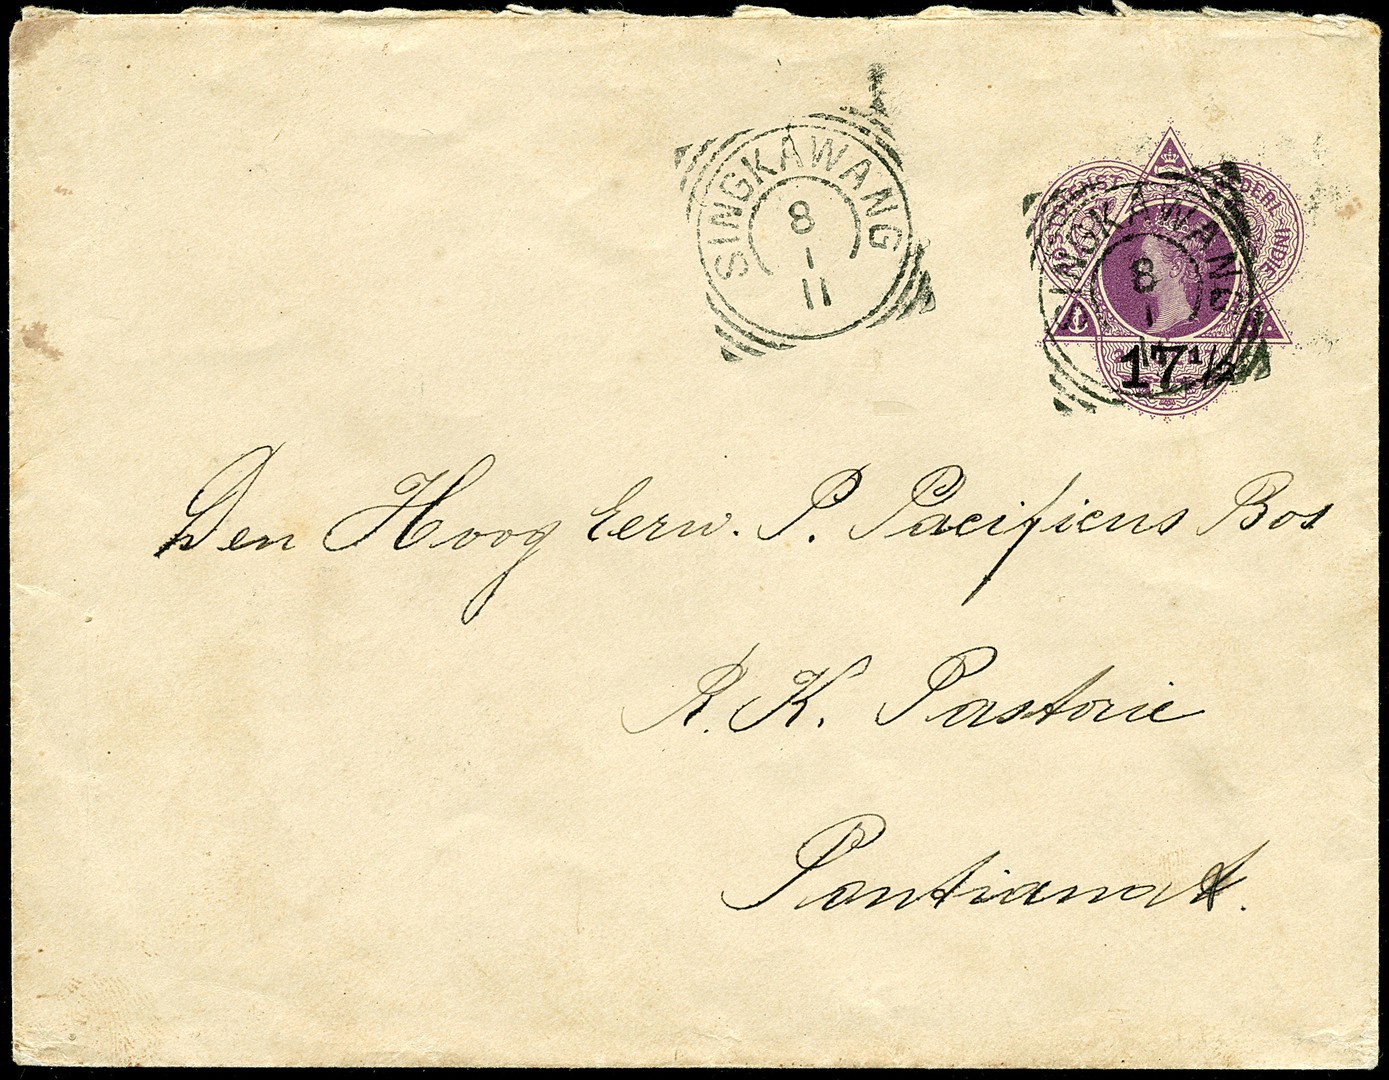 SINGKAWANG
8
1
11
POSTDIENST NEDERL-INDIE
INGKAWANG
8
1
17 1/2
Den Hoog Eerw. P. Pacificus Bos
R. K. Pastorie
Pontianak.